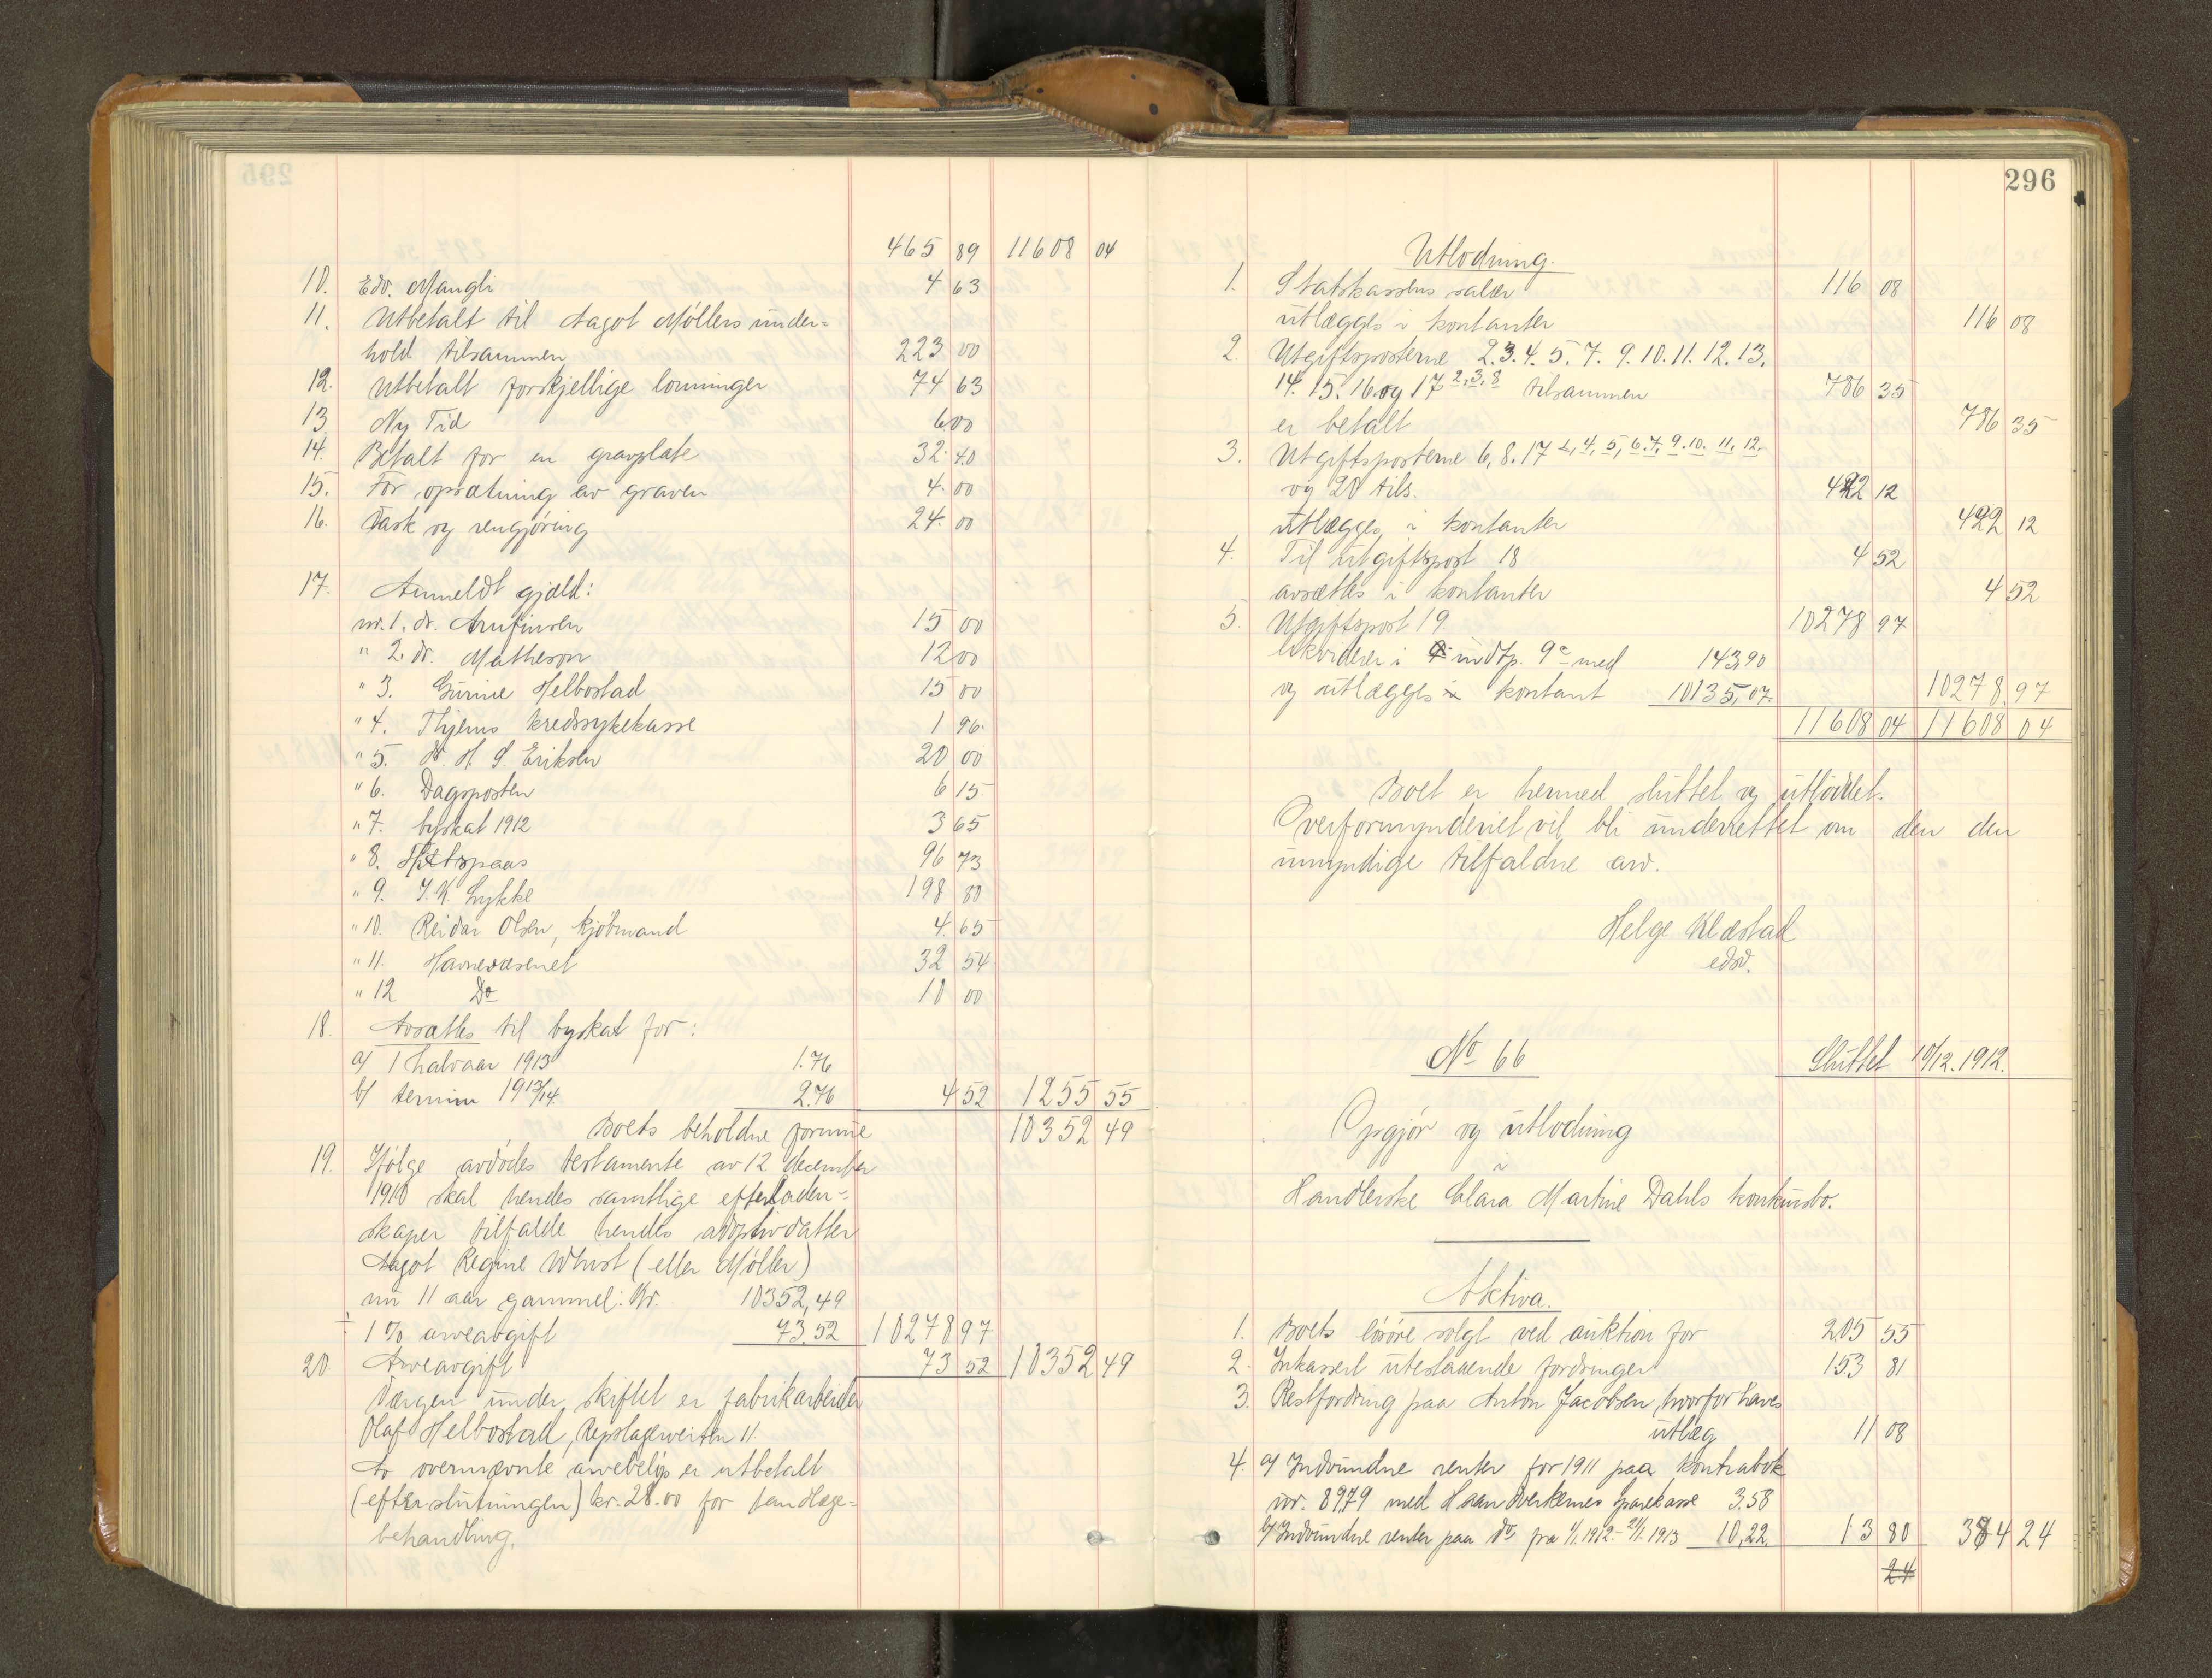 465 89 11608 04
10. Edv. Mangli 4 63
11. Utbetalt til Aagot Møllers under=
hold tilsammen 223 00
12. Utbetalt forskjellige lønninger 74 63
13. Ny Tid 6 00
14. Betalt for en gravplate 32 40
15. For opsætning av graven 4 00
16. Vask og rengjøring 24 00
17. Anmeldt gjæld:
nr. 1. dr. Arnfinsen 15 00
" 2. dr. Matheson 12 00
" 3. Gurine Helbostad 15 00
" 4. kredssykekasse 1 96
" 5. dr. H. S. Eriksen 20 00
" 6. Dagsposten 6 15
" 7. byskat 1912 3 65
" 8. 96 73
" 9. I. K. Lykke 198 80
" 10. Reidar Olsen, kjøbmand 4 65
" 11. Havnevæsenet 32 54
" 12 Do 10 00
18. Avsættes til byskat for:
a/ 1 halvaar 1913 1.76
b/ termin 1913/14 2.76 4 52 1255 55
Boets beholdne formue 10352 49
19. Ifølge avdødes testamente av 12 december
1910 skal hendes samtlige efterladen=
skaper tilfalde hendes adoptivdatter
Aagot Regine Whist (eller Møller)
nu 11 aar gammel: Kr. 10352,49
÷ 1% arveavgift 73.52 10278 97
20 Arveavgift 73 52 10352 49
Værgen under skiftet er fabrikarbeider
Olaf Helbostad, Repslagerveiten 11.
Av overnævnte arvebeløp er utbetalt
(efter slutningen) kr. 28.00 for tandlæge=
behandling.
296
Utlodning.
1. Statskassens salær 116 08
utlægges i kontanter 116 08
2. Utgiftsposterne 2.3.4.5.7.9.10.11.12.13.
14. 15. 16 og 17 2, 3, 8 tilsammen 786 35
er betalt 786 35
3. Utgiftsposterne 6, 8. 17 1, 4, 5, 6. 7, 9. 10. 11, 12.
og 20 tils. 422 12
utlægges i kontanter 422 12
4. Til utgiftspost 18 4 52
avsættes i kontanter 4 52
5. Utgiftspost 19. 10278 97
likviderer i indtp. 9c med 143,90
og utlægges kontant 10135,07 10278 97
11608 04 11608 04
Boet er hermed sluttet og utloddet.
Overformynderiet vil bli underrettet om den den
umyndige tilfaldne arv.
Helge Klæstad
edsv.
No 66 Sluttet 10/12. 1912.
Opgjør og utlodning
i
Handlerske Clara Martine Dahls konkursbo.
Aktiva.
1. Boets løsøre solgt ved auktion for 205 55
2. Inkassert utestaaende fordringer 153 81
3. Restfordring paa Anton Jacobsen, hvorfor haves
utlæg 11 08
4. a/ Indvundne renter for 1911 paa kontrabok
nr. 8979 med Haandverkernes Sparekasse 3.58
b/ Indvundne renter paa do fra 1/1. 1912 - 21/1. 1913 10,22 13 80 384 24
24